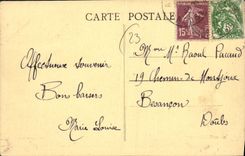 CARTE POSTALE
(23
15
Affectueux souvenir
Bon baisers
Marie Louise
Mr ou Mme Raoul
19 Chemin de Montjoux
Besançon
Doubs